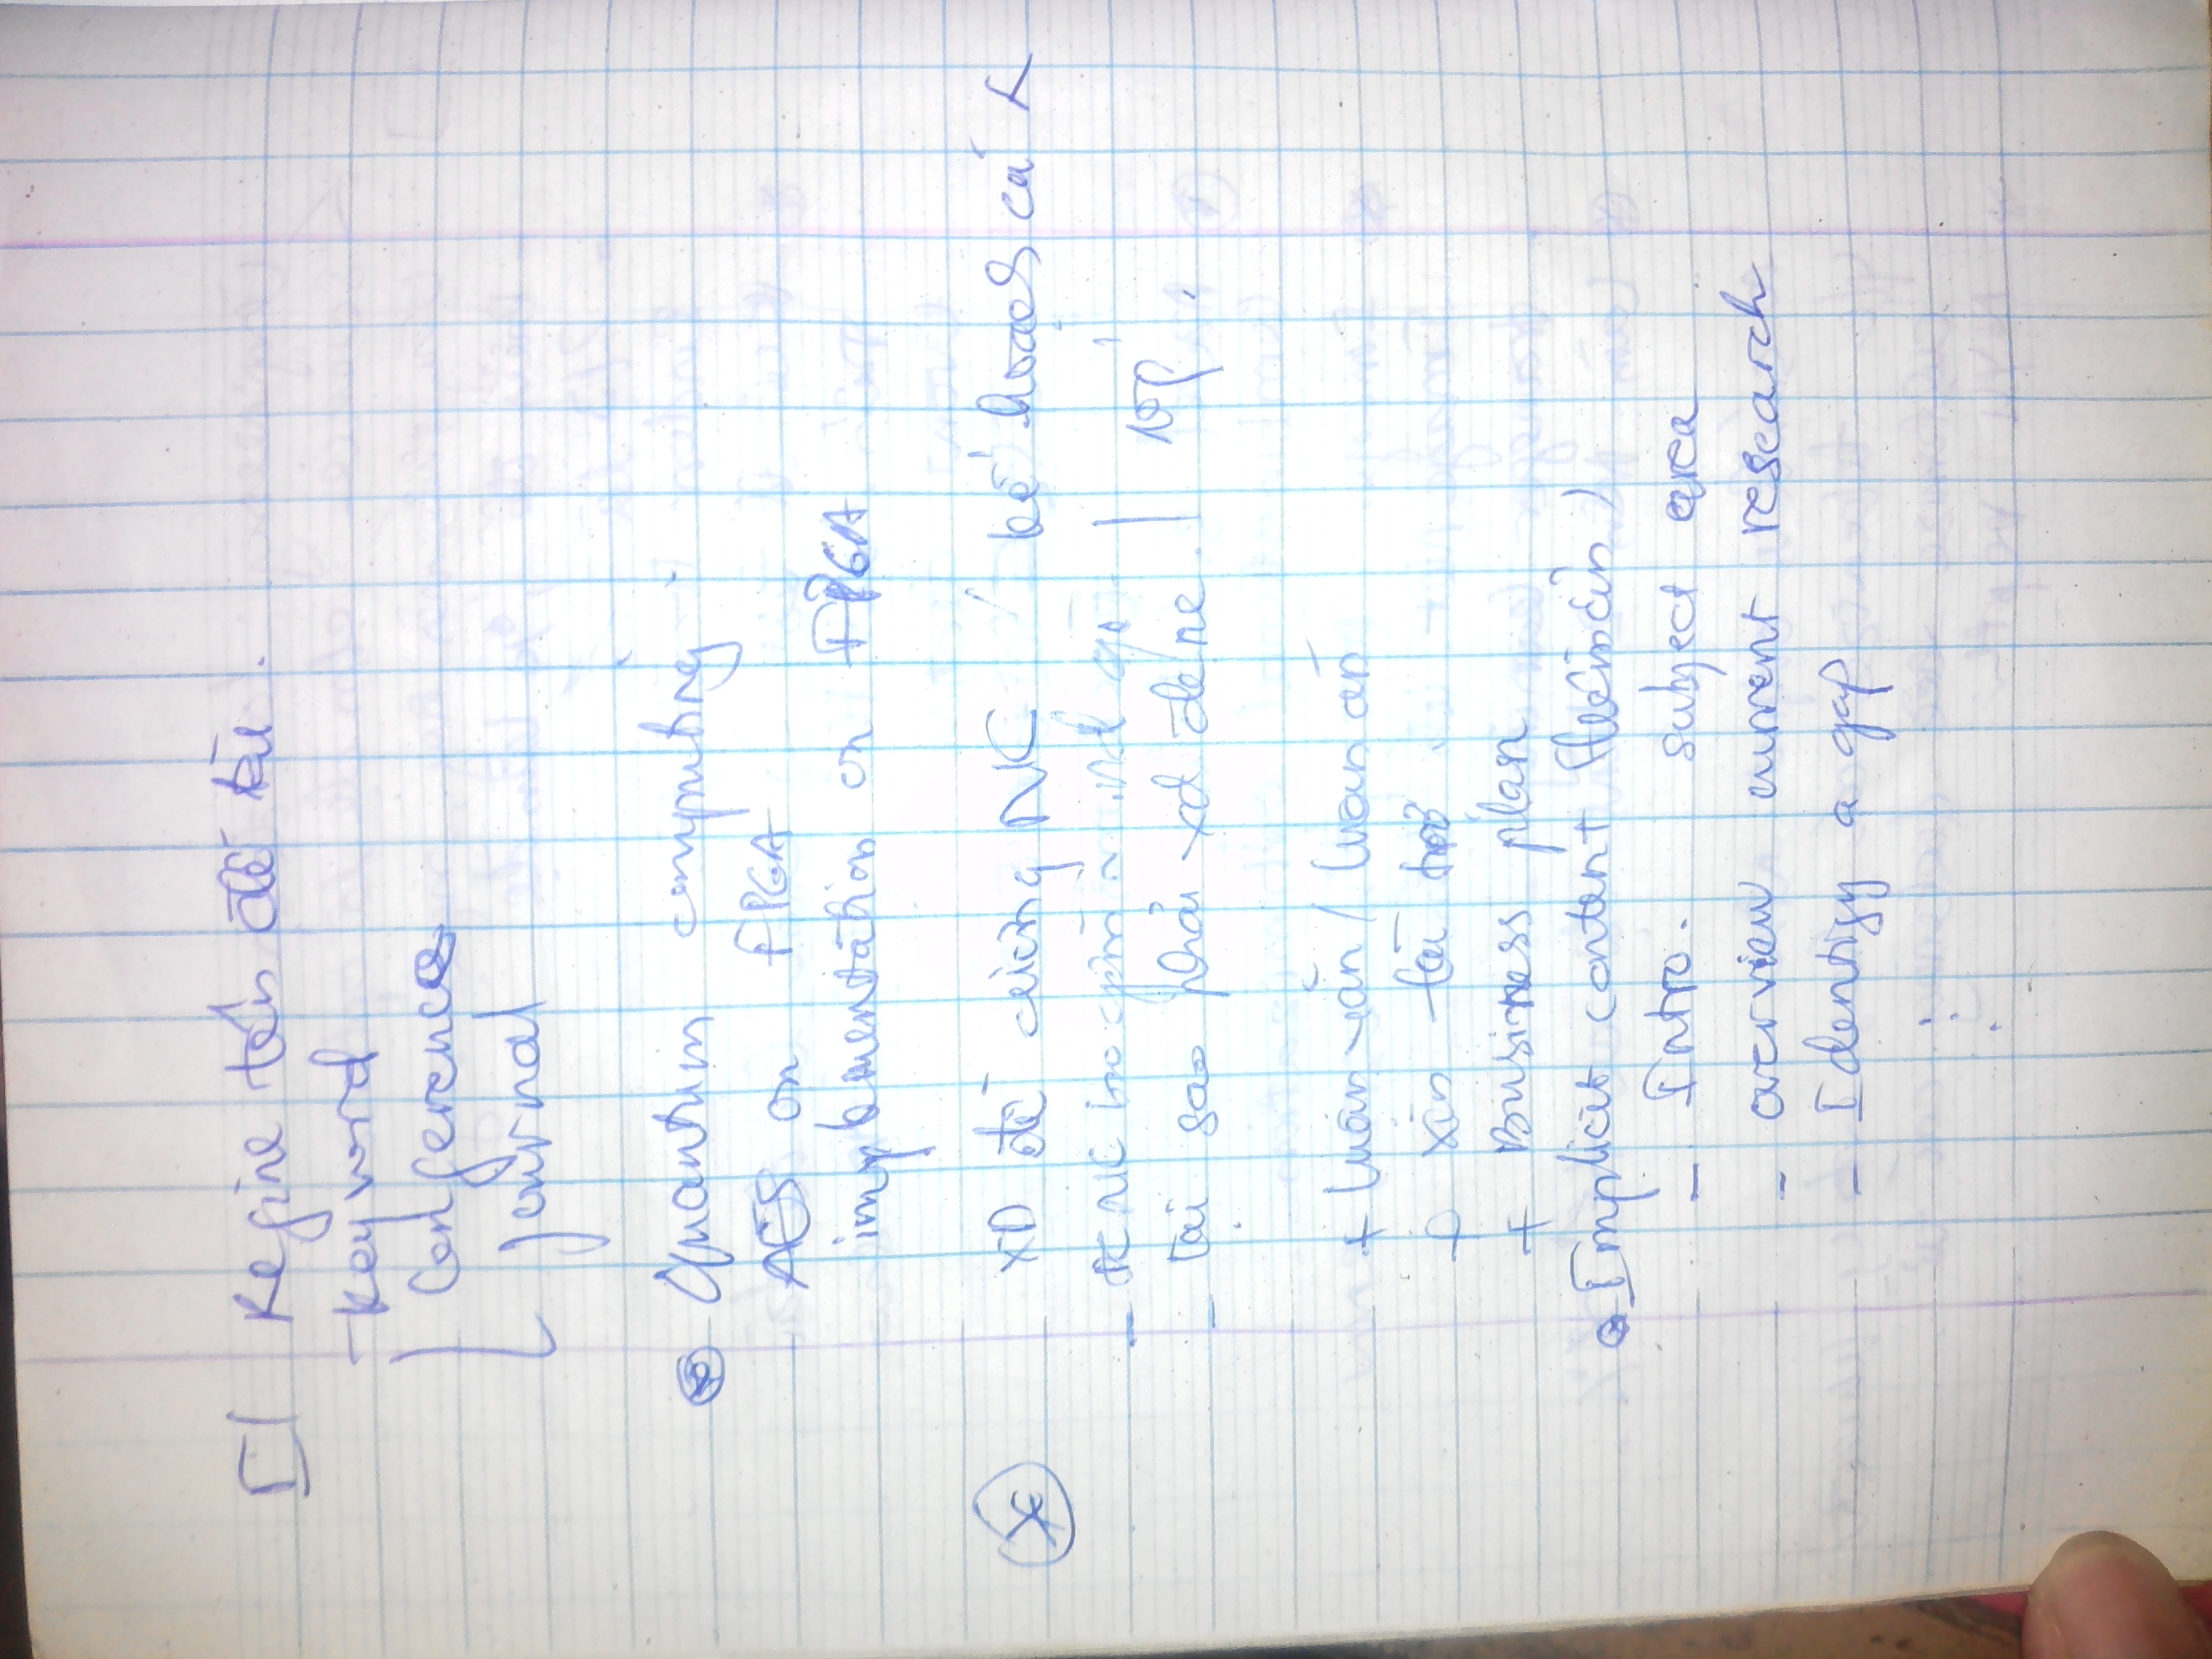 I/ Refine tên đề tài.
Keyword
Conference
Journal
Quantum computing
AES on FPGA
implementation on FPGA
XD đề cương NK / kế hoạch cá
ĐCNC
Tại sao phải xd đề | lớp
+ Luận văn / luận án
+ xin tài trợ
+ Business plan
Implicit content (
- Intro. subject area
- overview current research
- Identify a gap